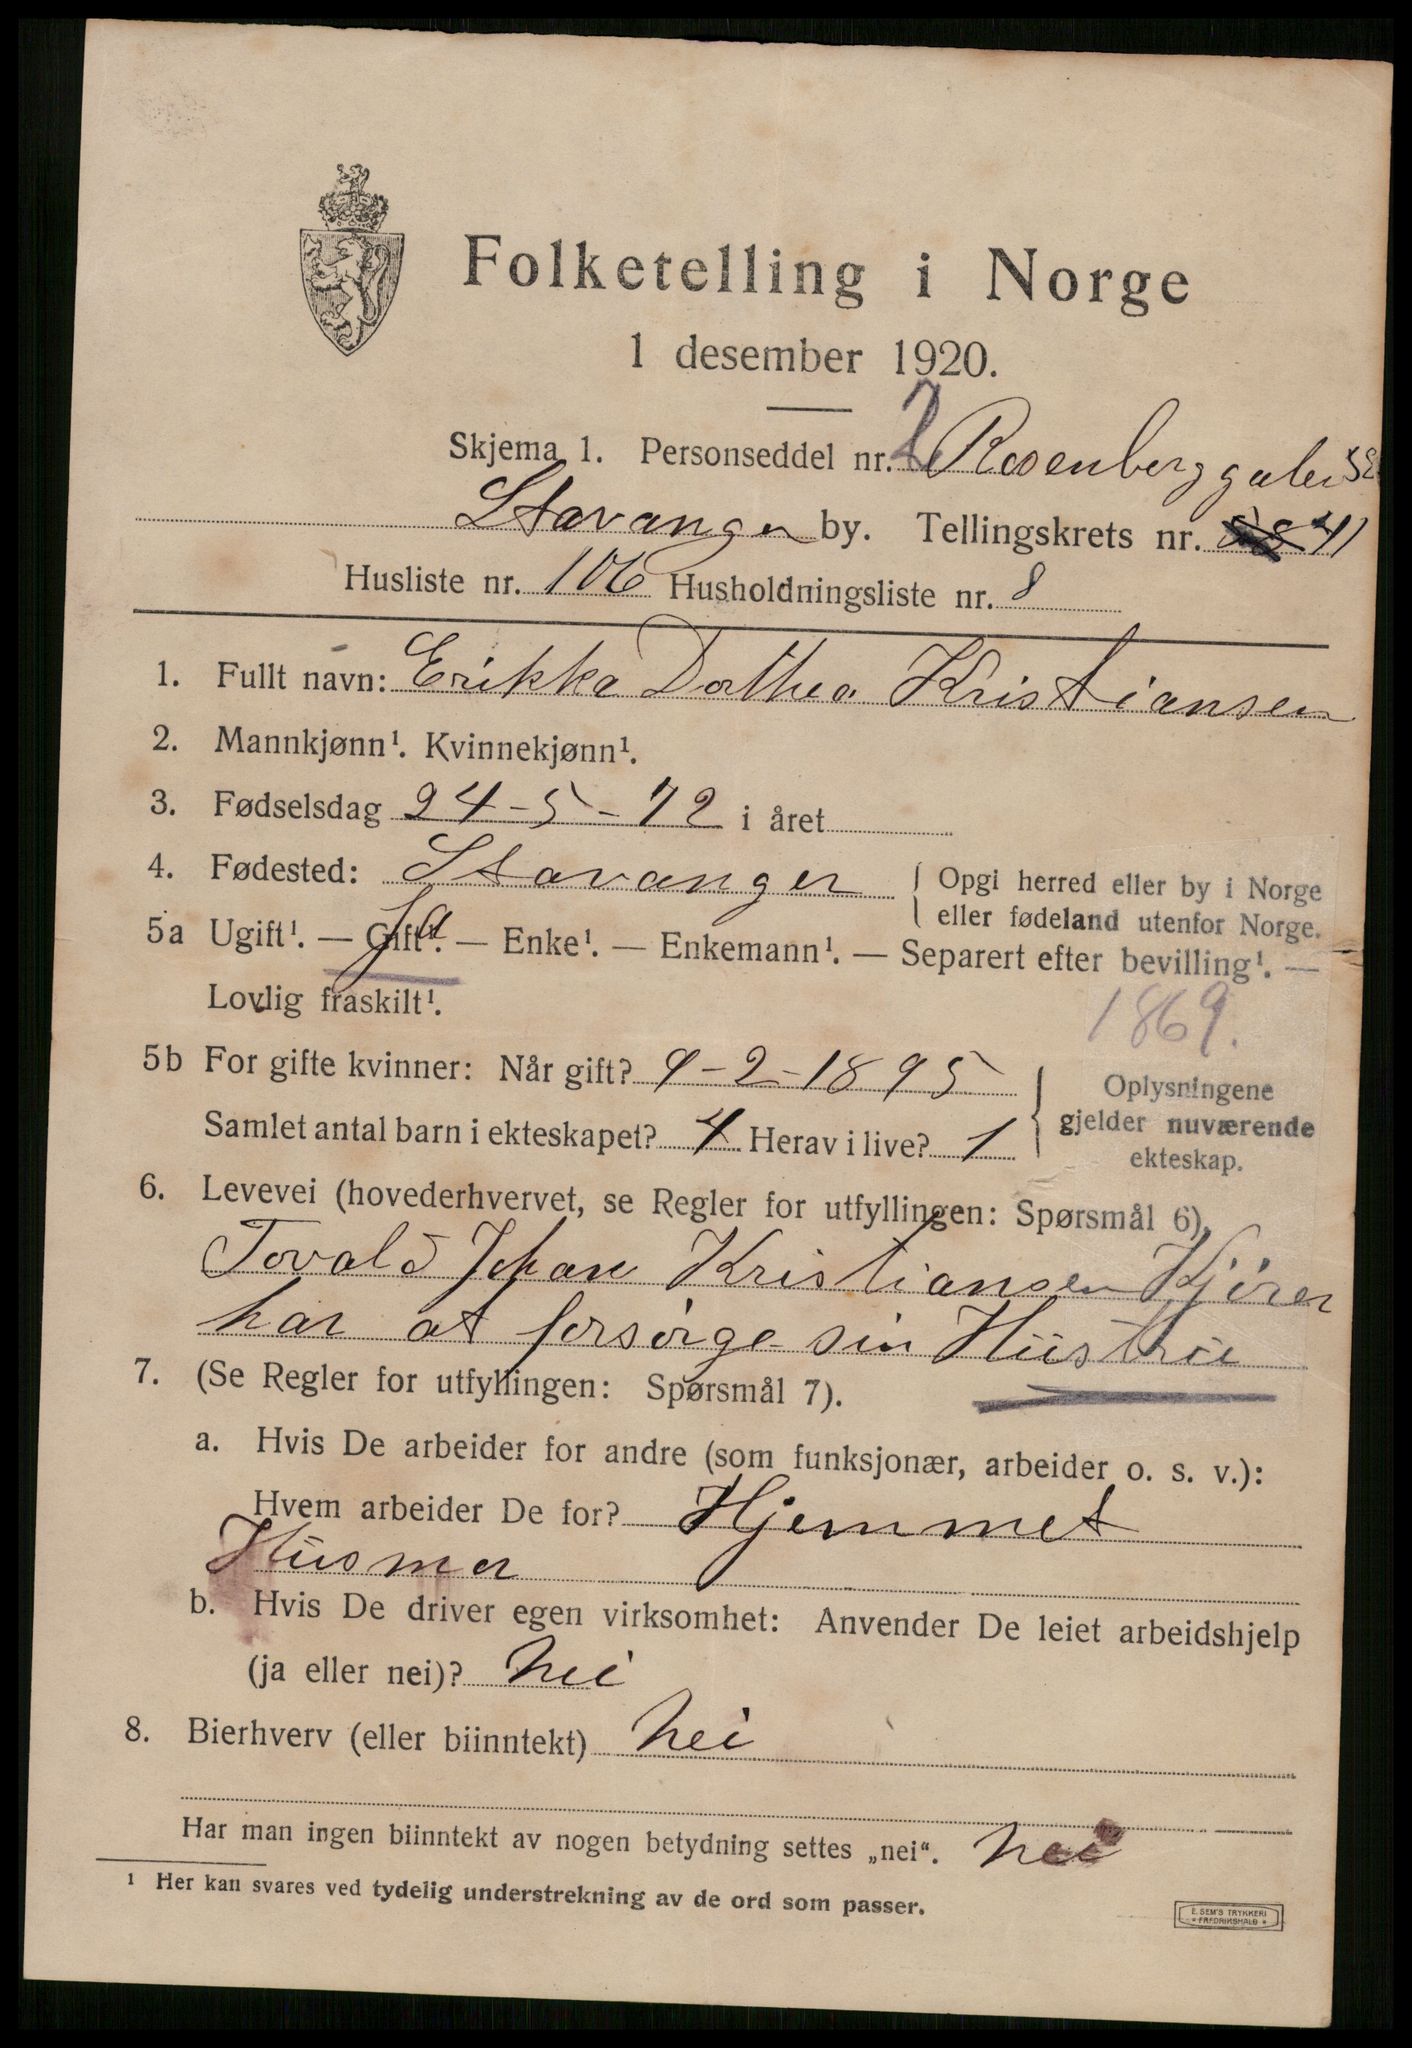 Folketelling i Norge
1 desember 1920.
Skjema 1. Personseddel nr. 2 Rosenberggaten 32
Stavanger by. Tellingskrets nr. 41
Husliste nr. 106 Husholdningsliste nr. 8
1. Fullt navn: Erikka Dorthea Kristiansen
2. Mannkjønn¹. Kvinnekjønn¹.
3. Fødselsdag 24-5-72 i året
4. Fødested: Stavanger { Opgi herred eller by i Norge
eller fødeland utenfor Norge.
5a Ugift¹. — Gift¹. — Enke¹. — Enkemann¹. — Separert efter bevilling¹. —
Ja
Lovlig fraskilt¹.
1869.
5b For gifte kvinner: Når gift? 9-2-1895
Samlet antal barn i ekteskapet? 4 Herav i live? 1
Oplysningene
gjelder nuværende
ekteskap.
6. Levevei (hovederhvervet, se Regler for utfyllingen: Spørsmål 6).
Tovald Johan Kristiansen Kjører
har at forsørge sin Hustru
7. (Se Regler for utfyllingen: Spørsmål 7).
a. Hvis De arbeider for andre (som funksjonær, arbeider o. s. v.):
Hvem arbeider De for? Hjemmet
Husmor
b. Hvis De driver egen virksomhet: Anvender De leiet arbeidshjelp
(ja eller nei)? nei
8. Bierhverv (eller biinntekt) nei
Har man ingen biinntekt av nogen betydning settes „nei“. nei
¹ Her kan svares ved tydelig understrekning av de ord som passer.
E. SEM'S TRYKKERI
* FREDRIKSHALD *